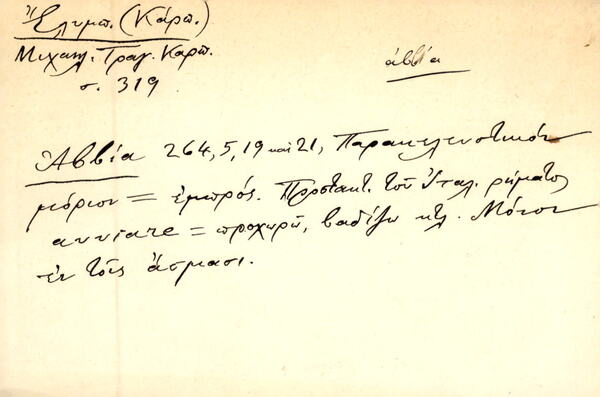 Ἔλυμπ. (Κάρπ.)
Μιχαηλ. Τραγ. Καρπ.
σ. 319
ἀββία
Ἀββία 264,5,19 καὶ 21, Παρακελευστικὸν
μόριον = ἐμπρός. Προστακτ. τοῦ Ἰταλ. ρήματος
avviare = προχωρῶ, βαδίζω κτλ. Μόνον
ἐν τοῖς ᾄσμασι.